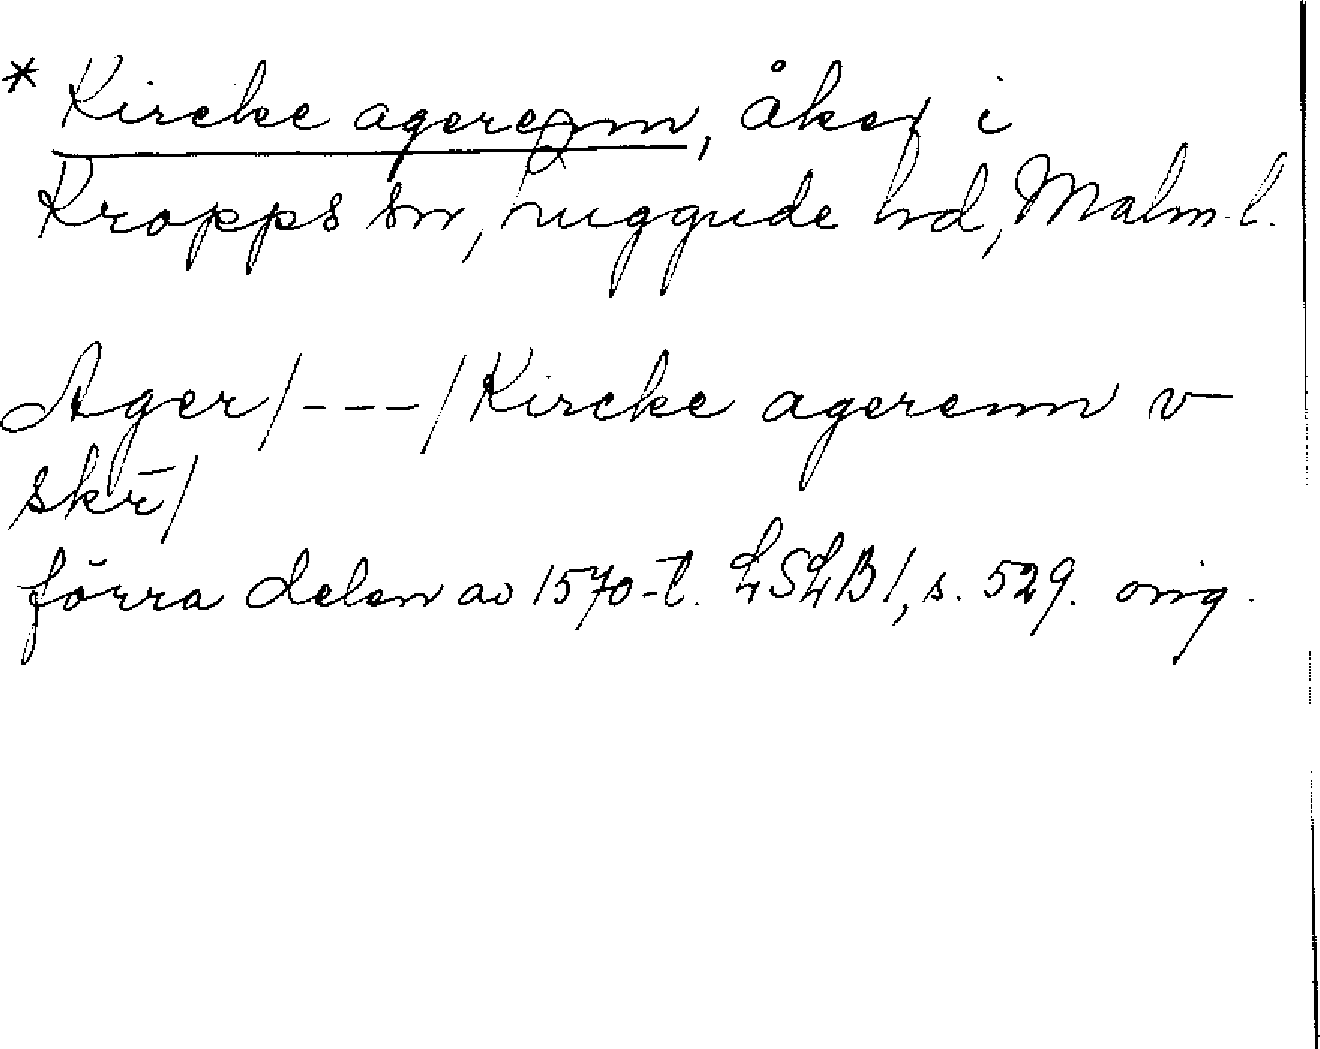 * Kircke agerenn, åker i
Kropps sn, Luggude hd, Malm. l.
Ager/---/Kircke agerenn v
skr̄/
förra delen av 1570-t. LSLB 1, s. 529. orig.